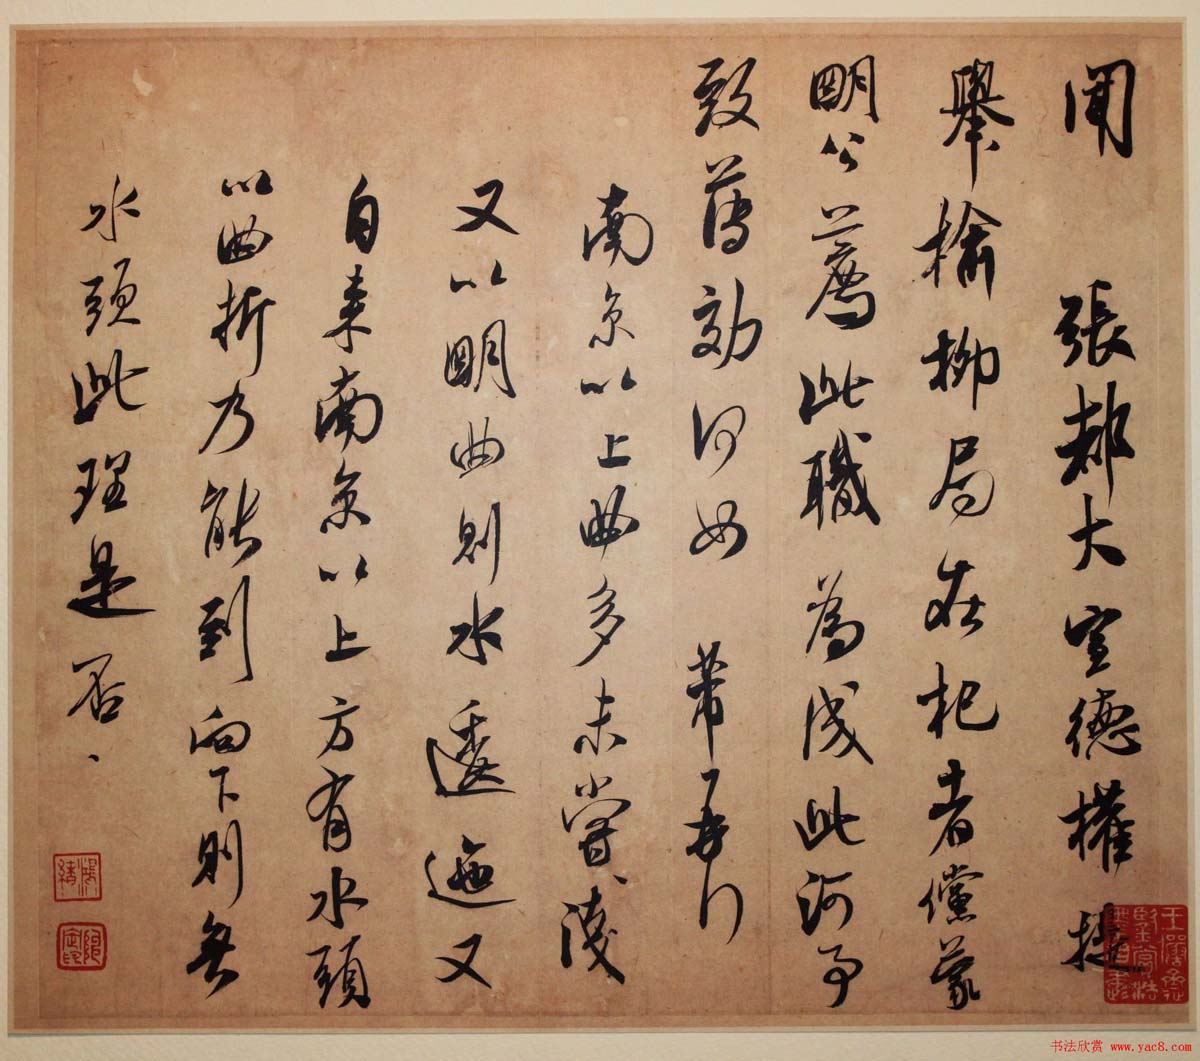 聞 張都大宣德權提
舉榆柳局在杞者儻蒙
明公薦此職為成此河事
致薄効何如 芾再拜
南京以上曲多未嘗淺
又以明曲則水逶迤又
自來南京以上方有水頭
以曲折乃能到向下則無
水頭此理是否
书法欣赏 www.yac8.com